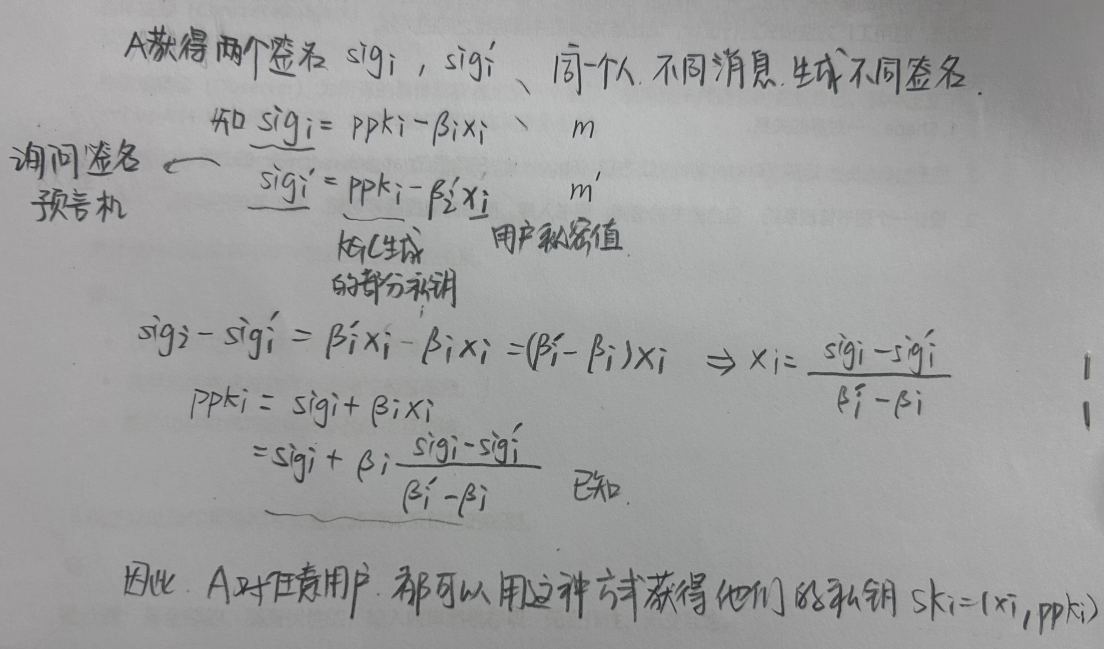 A获得两个签名 sigi , sigi′、同一个人. 不同消息. 生成不同签名.
知 sigi = ppki - βixi 、 m
询问签名 ← sigi′ = ppki - βi′xi m′
预言机 KGC生成 用户私密值
的部分私钥
sigi - sigi′ = βi′xi - βixi = (βi′ - βi)xi ⇒ xi = (sigi - sigi′)/(βi′ - βi)
ppki = sigi + βixi
= sigi + βi (sigi - sigi′)/(βi′ - βi) 已知.
因此. A对任意用户. 都可以用这种方式获得他们的私钥 ski = (xi, ppki)